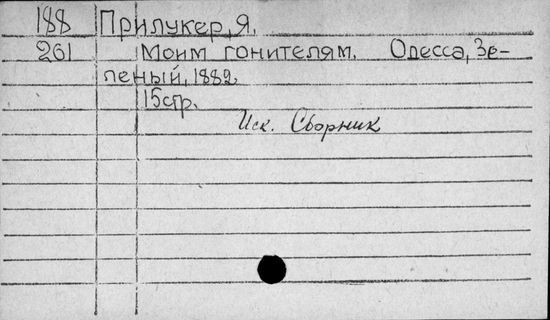 188 Прилукер, Я.
261 Моим гонителям. Одесса, Зе-
леный, 1882.
15 стр.
Иск. Сборник